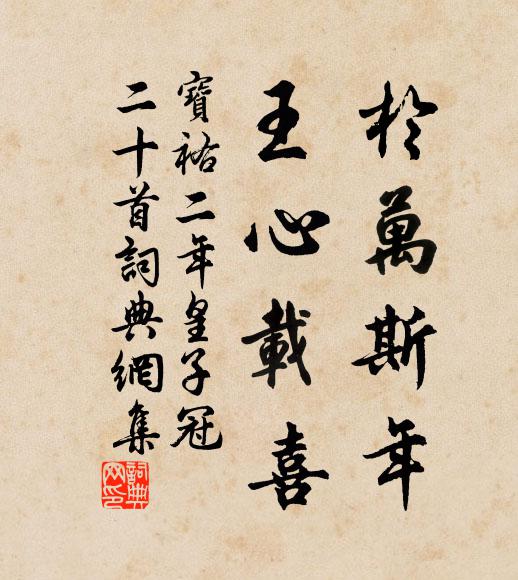 於萬斯年
王心載喜
寶祐二年皇子冠
二十首詞典網集
詞典
网印